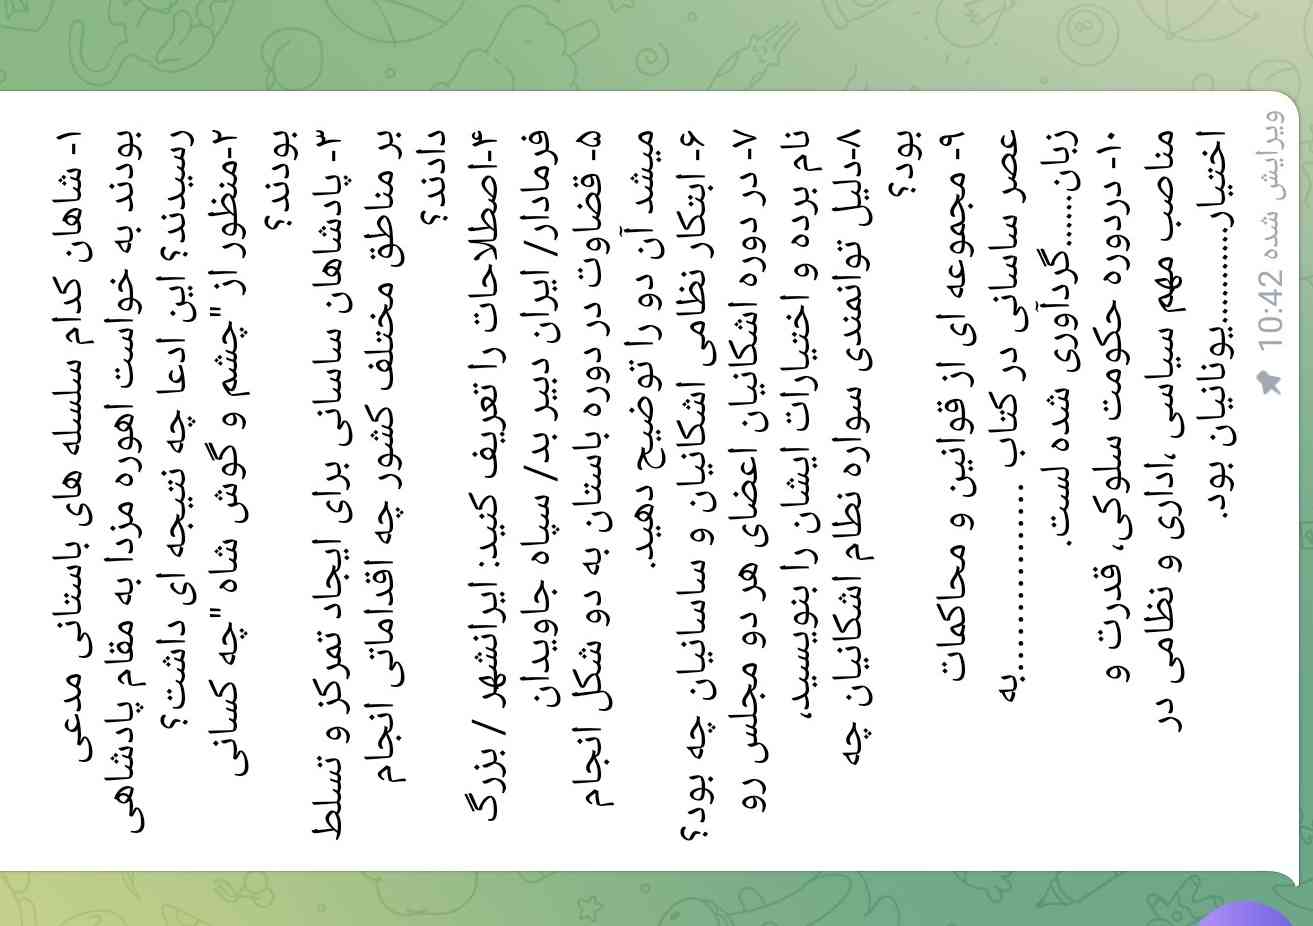 ۱- شاهان کدام سلسله های باستانی مدعی
بودند به خواست اهوره مزدا به مقام پادشاهی
رسیدند؟ این ادعا چه نتیجه ای داشت؟
۲-منظور از "چشم و گوش شاه "چه کسانی
بودند؟
۳- پادشاهان ساسانی برای ایجاد تمرکز و تسلط
بر مناطق مختلف کشور چه اقداماتی انجام
دادند؟
۴-اصطلاحات را تعریف کنید: ایرانشهر / بزرگ
فرمادار/ ایران دبیر بد/ سپاه جاویدان
۵- قضاوت در دوره باستان به دو شکل انجام
میشد آن دو را توضیح دهید.
۶- ابتکار نظامی اشکانیان و ساسانیان چه بود؟
۷- در دوره اشکانیان اعضای هر دو مجلس رو
نام برده و اختیارات ایشان را بنویسید،
۸-دلیل توانمندی سواره نظام اشکانیان چه
بود؟
۹- مجموعه ای از قوانین و محاکمات
عصر ساسانی در کتاب ..................به
زبان......گردآوری شده لست.
۱۰- دردوره حکومت سلوکی، قدرت و
مناصب مهم سیاسی ،اداری و نظامی در
اختیار...........یونانیان بود.
ویرایش شده 10:42